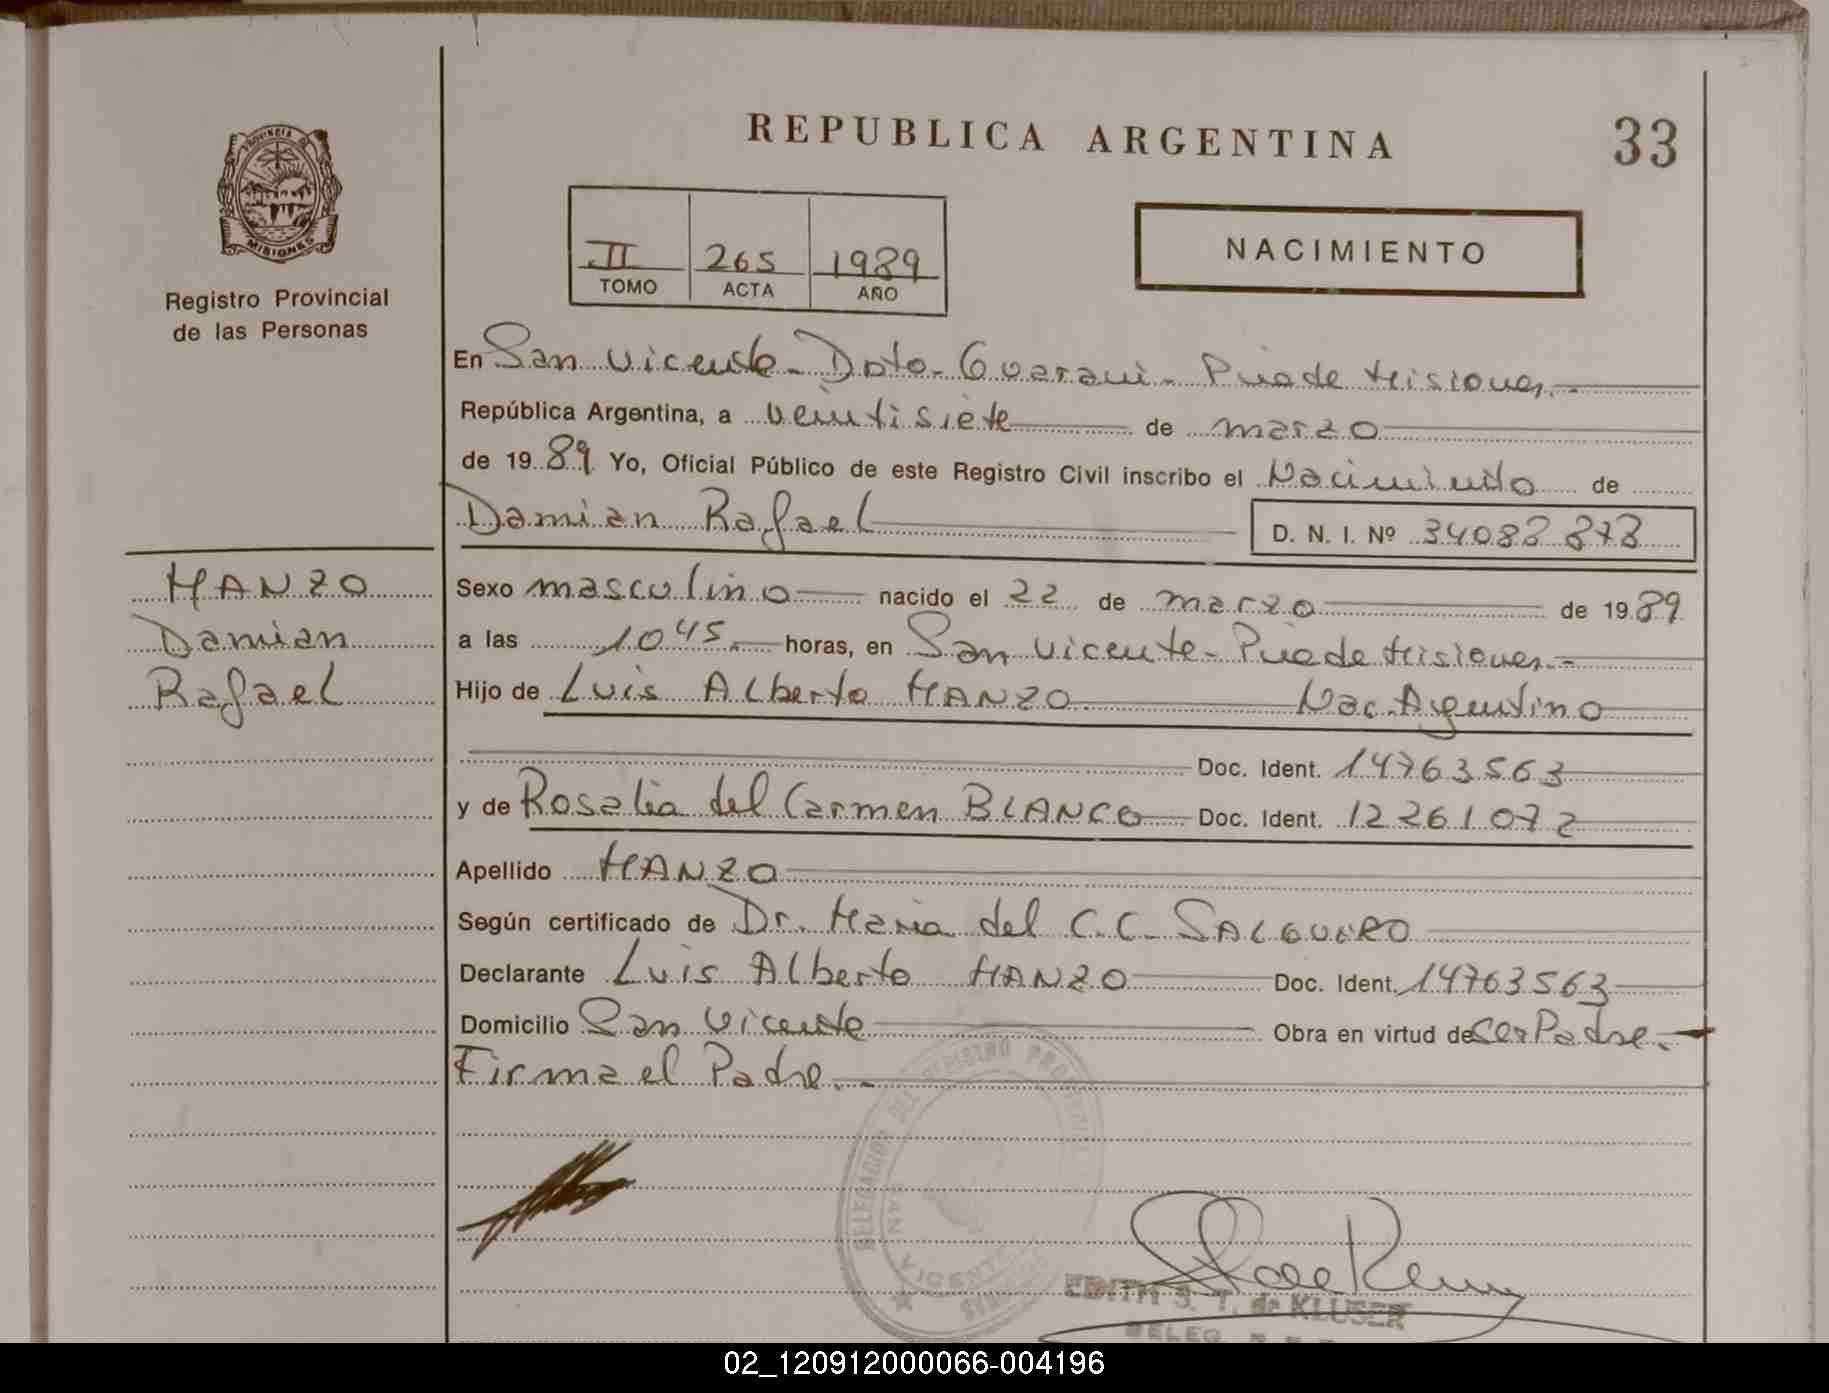 REPUBLICA ARGENTINA
33
PROVINCIA DE
MISIONES
Registro Provincial
de las Personas
II 265 1989
TOMO ACTA AÑO
NACIMIENTO
En San Vicente - Dpto - Guarani - Pcia de Misiones.-
República Argentina, a veintisiete de marzo
de 1989 Yo, Oficial Público de este Registro Civil inscribo el Nacimiento de
Damian Rafael D. N. I. Nº 34088 878
MANZO
Damian
Rafael
Sexo masculino nacido el 22 de marzo de 1989
a las 10 45.- horas, en San Vicente - Pcia de Misiones.-
Hijo de Luis Alberto MANZO Nac. Argentino
Doc. Ident. 14763563
y de Rosalia del Carmen BLANCO Doc. Ident. 12261072
Apellido MANZO
Según certificado de Dr. Maria del C. C. SALGUERO
Declarante Luis Alberto MANZO Doc. Ident. 14763563
Domicilio San Vicente Obra en virtud de ser Padre.-
Firma el Padre.-
DELEGACION DEL REGISTRO PROVINCIAL
SAN VICENTE
MISIONES
EDITH S. T. de KLUSER
DELEG.
02_120912000066-004196